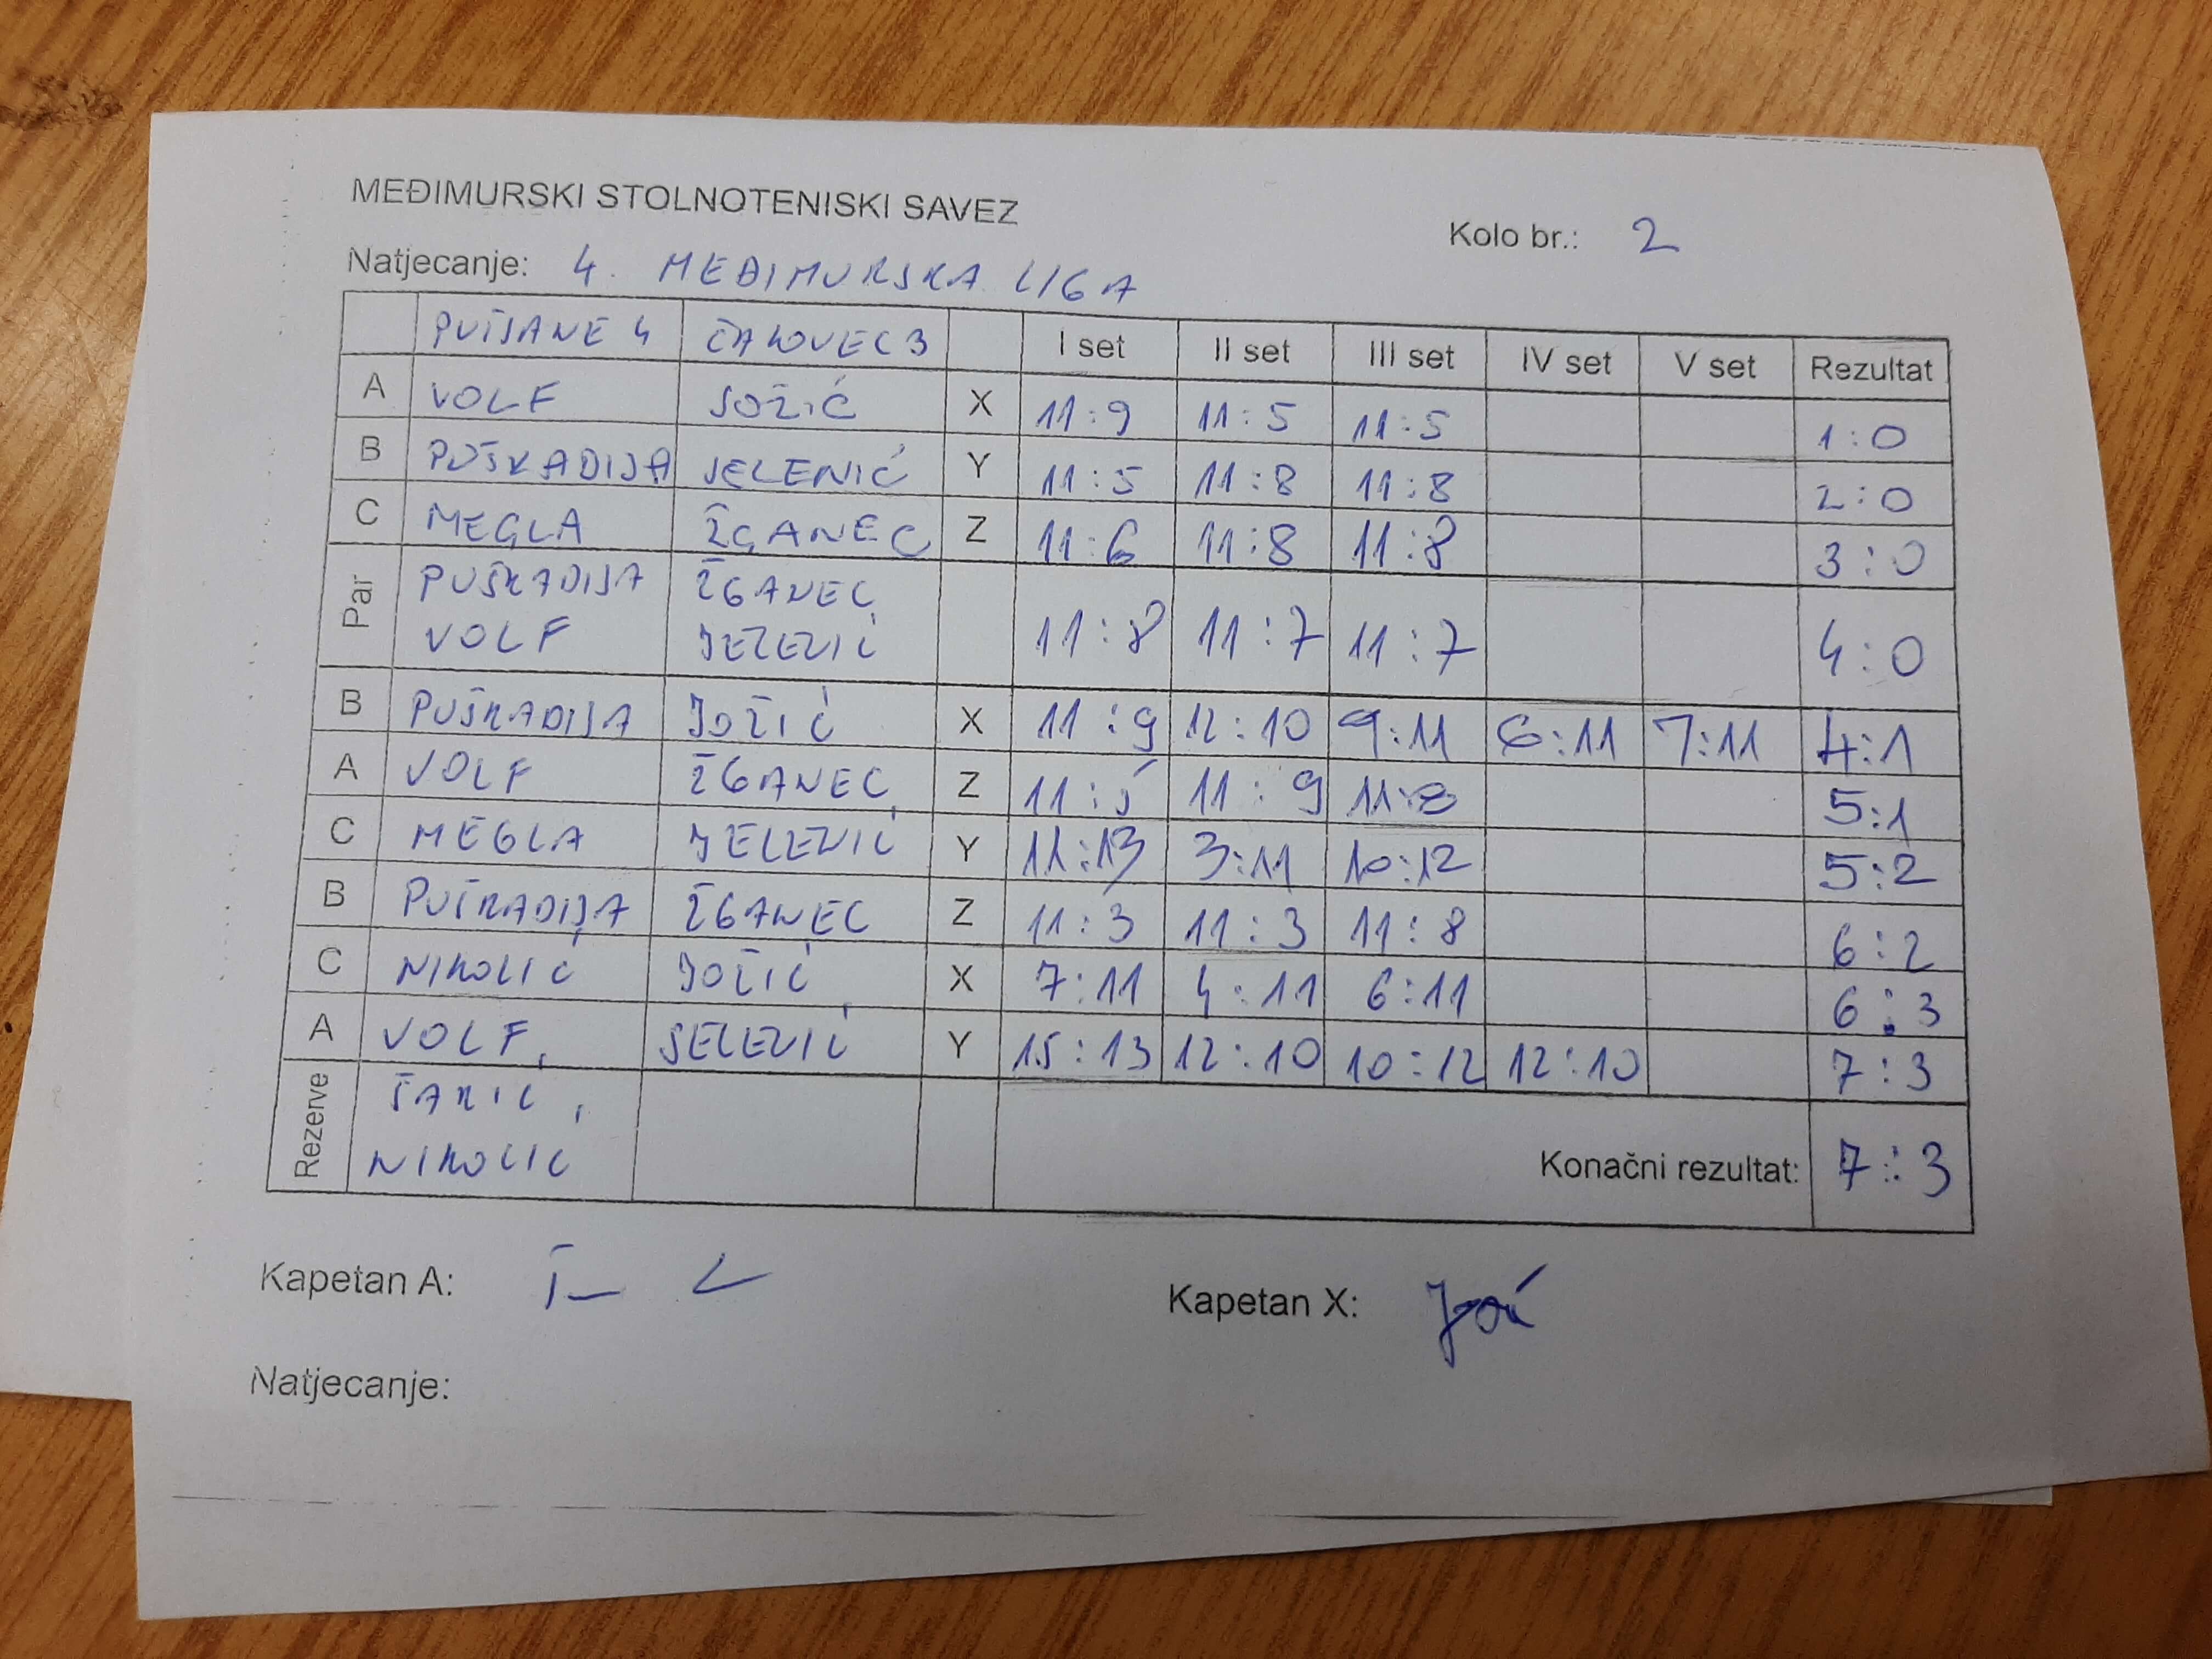 MEĐIMURSKI STOLNOTENISKI SAVEZ
Kolo br.: 2
Natjecanje: 4. MEĐIMURSKA LIGA
PUŠĆANE 4 ČAKOVEC 3 I set II set III set IV set V set Rezultat
A VOLF JOŽIĆ X 11:9 11:5 11:5 1:0
B PUŠKADIJA JELENIĆ Y 11:5 11:8 11:8 2:0
C MEGLA ŽGANEC Z 11:6 11:8 11:8 3:0
Par PUŠKADIJA ŽGANEC 11:8 11:7 11:7 4:0
VOLF JELENIĆ
B PUŠKADIJA JOŽIĆ X 11:9 12:10 9:11 6:11 7:11 4:1
A VOLF ŽGANEC Z 11:5 11:9 11:8 5:1
C MEGLA JELENIĆ Y 11:13 3:11 10:12 5:2
B PUŠKADIJA ŽGANEC Z 11:3 11:3 11:8 6:2
C NIKOLIĆ JOŽIĆ X 7:11 4:11 6:11 6:3
A VOLF JELENIĆ Y 15:13 12:10 10:12 12:10 7:3
Rezerve ŠARIĆ,
NIKOLIĆ
Konačni rezultat: 7:3
Kapetan A:
Kapetan X:
Natjecanje: